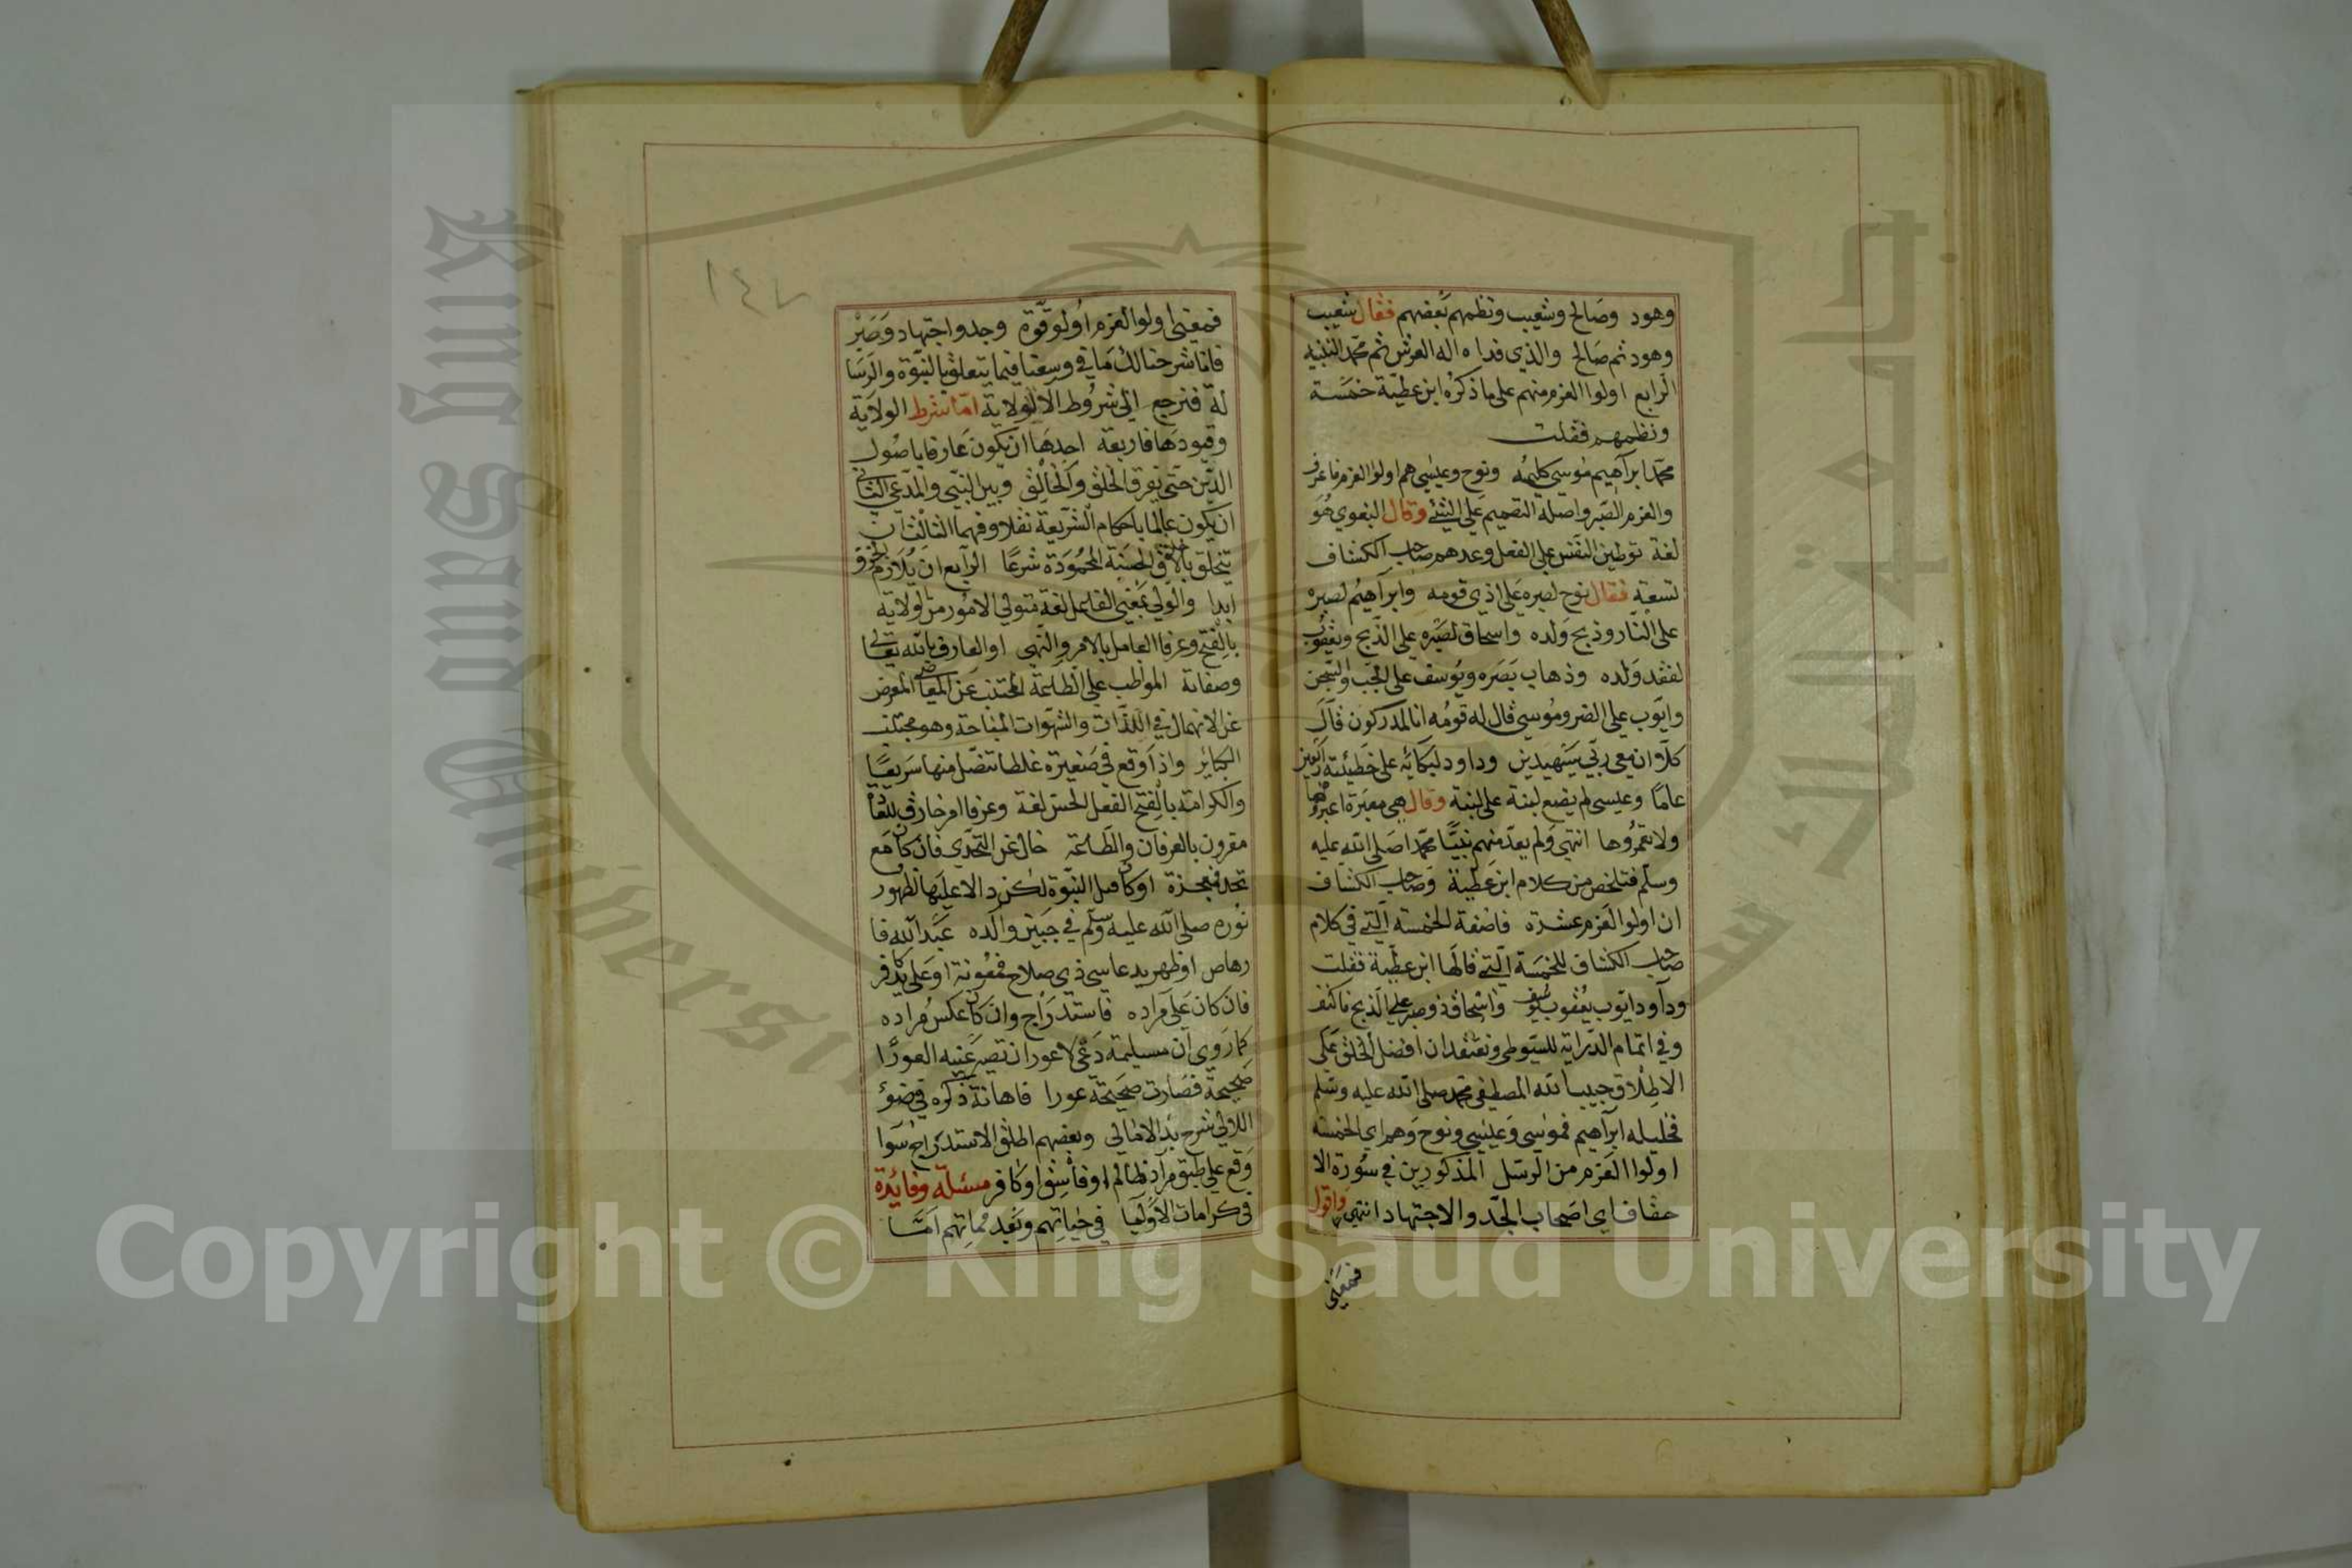 وهود وصالح وشعيب ونظمهم بعضهم فقال شعيب
وهود ثم صالح والذي فداه اله العرش ثم محمد التنبيه
الرابع اولوا العزم منهم على ما ذكره ابن عطية خمسة
ونظمهم فقلت
محمد ابراهيم موسى كليمه ونوح وعيسى هم اولوا العزم فاعرف
والعزم الصبر واصله التصميم على الشئ وقال البغوي هو
لغة توطين النفس على الفعل وعدهم صاحب الكشاف
تسعة فقال نوح لصبره على اذى قومه وابراهيم لصبره
على النار وذبح ولده واسحاق لصبره على الذبح ويعقوب
لفقد ولده وذهاب بصره ويوسف على الجب والسجن
وايوب على الضر وموسى قال له قومه انا لمدركون قال
كلا ان معي ربي سيهدين وداود لبكائه على خطيئته اربعين
عاما وعيسى لم يضع لبنة على لبنة وقال هي معبرة اعبروها
ولا تعمروها انتهى ولم يعد منهم نبينا محمدا صلى الله عليه
وسلم فتلخص من كلام ابن عطية وصاحب الكشاف
ان اولوا العزم عشرة فاضفة الخمسة التي في كلام
صاحب الكشاف للخمسة التي قالها ابن عطية فقلت
وداود ايوب يعقوب يوسف واسحاق ذو صبر على الذبح فاكتف
وفي اتمام الدراية للسيوطي ونعتقد ان افضل الخلق على
الاطلاق حبيب الله المصطفى محمد صلى الله عليه وسلم
فخليله ابراهيم فموسى وعيسى ونوح وهم اي الخمسة
اولوا العزم من الرسل المذكورين في سورة الا
حقاف اي اصحاب الجد والاجتهاد انتهى واقول
فمعنى
١٤٧
فمعنى اولوا العزم اولو قوة وجد واجتهاد وصبر
فانا شرحنا لك ما في وسعنا فيما يتعلق بالنبوة والرسا
لة فنرجع الى شروط الولاية اما شرط الولاية
وقيودها فاربعة احدها ان يكون عارفا باصول
الدين حتى يفرق الخلق والخالق وبين النبي والمدعي الثاني
ان يكون عالما باحكام الشريعة نقلا وفهما الثالث ان
يتخلق بالاخلاق الحسنة المحمودة شرعا الرابع ان يلازم الخوف
ابدا والولي بمعنى الفاعل لغة متولي الامور من لولاية
بالفتح وعرفا العامل بالامر والنهي او العارف بالله تعالى
وصفاته المواظب على الطاعة المجتنب عن المعاصي المعرض
عن الانهمال في اللذات والشهوات المباحة وهو مجتنب
الكبائر واذا وقع في صغيرة غلطا تنصل منها سريعا
والكرامة بالفتح الفعل الحسن لغة وعرفا امر خارق للعادة
مقرون بالعرفان والطاعة خال عن التحدي فان كان مع
تحد فمعجزة او كان قبل النبوة لكن دالا عليها كظهور
نوره صلى الله عليه وسلم في جبين والده عبد الله فا
رهاص او ظهر بيد عاسي ذي صلاح فمعونة او على يد كافر
فان كان على مراده فاستدراج وان كان عكس مراده
كما روي ان مسيلمة دعى لاعور ان تصير عينه العورا
صحيحة فصارت صحيحته عورا فاهانة ذكره في ضوء
اللالي شرح بدء الامالي وبعضهم اطلق الاستدراج سوا
وقع على طبق مراد ظالم او فاسق او كافر مسئلة وفائدة
في كرامات الاوليا في حياتهم وبعد مماتهم اما
King Saud University
Copyright © King Saud University